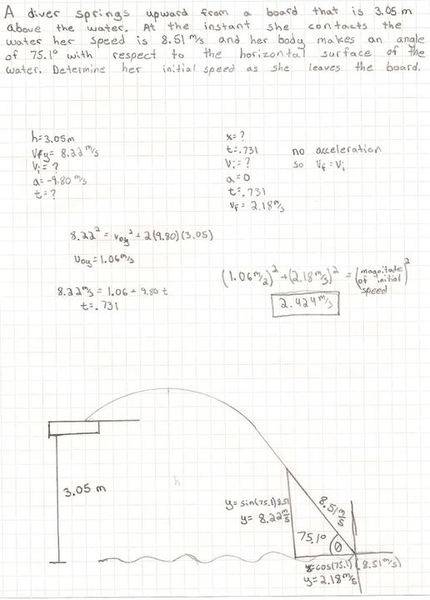 A diver springs upward from a board that is 3.05 m
above the water. At the instant she contacts the
water her speed is 8.51 m/s and her body makes an angle
of 75.1° with respect to the horizontal surface of the
water. Determine her initial speed as she leaves the board.
h=3.05m
Vfy= 8.22 m/s
Vi= ?
a=-9.80 m/s
t= ?
x= ?
t=.731
Vi= ?
a=0
t=.731
Vf= 2.18 m/s
no acceleration
so Vf=Vi
8.22²= voy²+2(9.80)(3.05)
voy=1.06 m/s
8.22 m/s = 1.06+9.80 t
t=.731
(1.06 m/2)²+(2.18 m/s)² = (magnitade of initial speed)²
2.424 m/s
3.05 m
y=sin(75.1)8.51
y= 8.22 m/s
8.51 m/s
75.1°
θ
x=cos(75.1)(8.51 m/s)
y=2.18 m/s